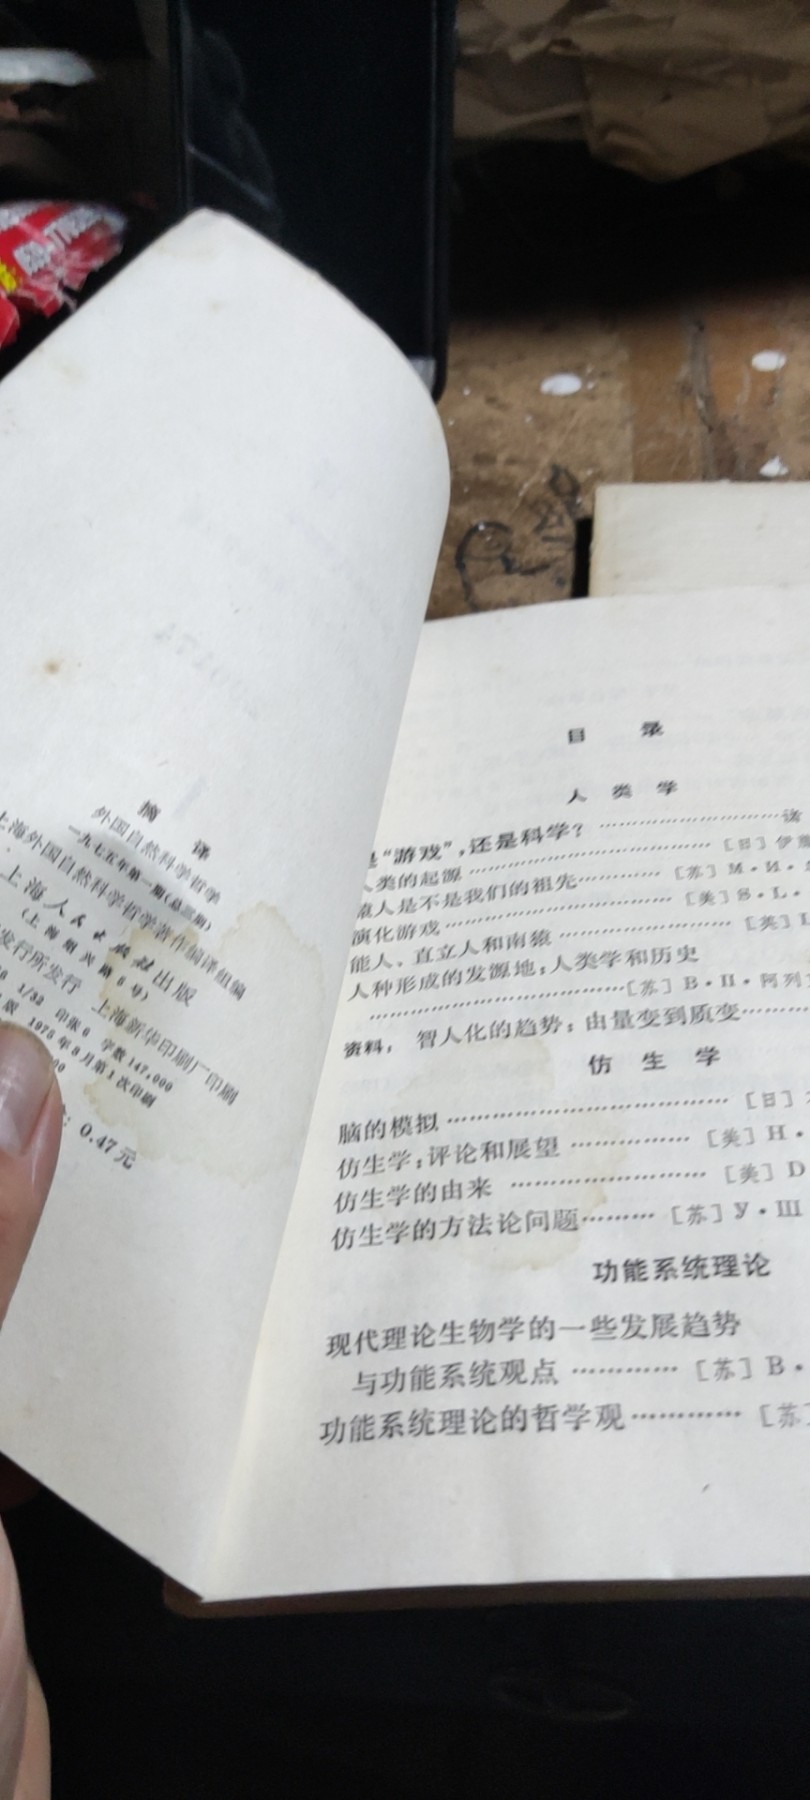 摘 译
外国自然科学哲学
一九七五年第一期(总三期)
上海外国自然科学哲学著作编译组编
上海人民出版社出版
(上海绍兴路5号)
发行所发行 上海新华印刷厂印刷
1/32 印张6 字数147,000
1975年8月第1次印刷
0.47元
目 录
人 类 学
“游戏”,还是科学? ……
人类的起源 …… [日]伊
猿人是不是我们的祖先…… [苏]М·И·
演化游戏…… [美]S·L·
能人、直立人和南猿 …… [英]L
人种形成的发源地:人类学和历史
……[苏]В·П·阿列
资料: 智人化的趋势:由量变到质变……
仿 生 学
脑的模拟 …… [日]
仿生学:评论和展望 …… [美]H·
仿生学的由来 …… [美]D
仿生学的方法论问题…… [苏]У·Ш
功能系统理论
现代理论生物学的一些发展趋势
与功能系统观点 …… [苏]В·
功能系统理论的哲学观…… [苏]